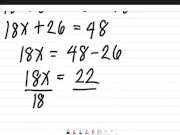 18x + 26 = 48
18x = 48 - 26
18x = 22
18